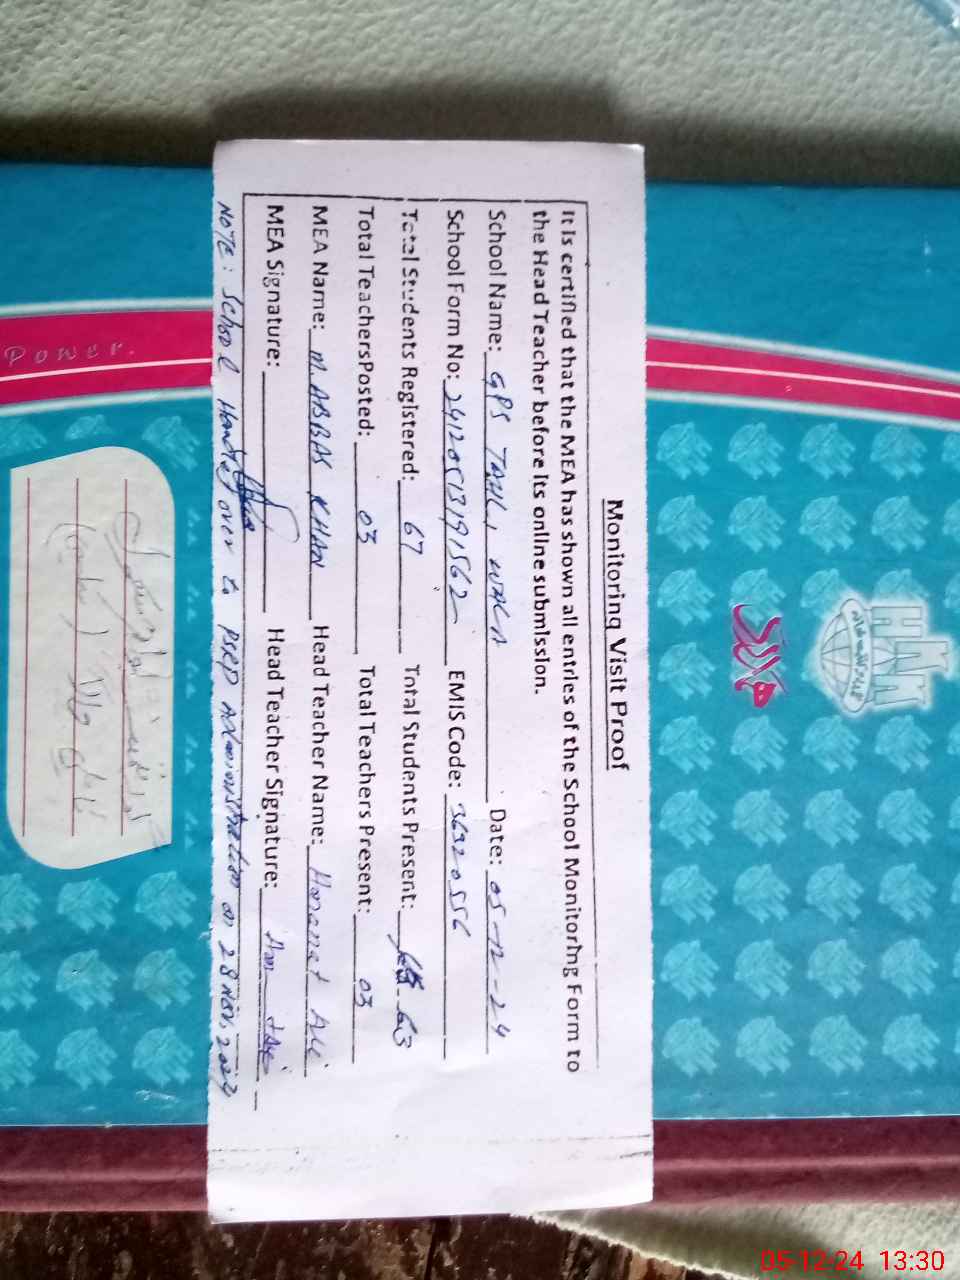 Monitoring Visit Proof
It is certified that the MEA has shown all entries of the School Monitoring Form to
the Head Teacher before its online submission.
School Name: GPS TAHLI WALA Date: 05-12-24
School Form No: 24120513191562 EMIS Code: 36320556
Total Students Registered: 67 Total Students Present: 63
Total TeachersPosted: 03 Total Teachers Present: 03
MEA Name: M. ABBAS KHAN Head Teacher Name: Ali
MEA Signature: Head Teacher Signature:
NOTE: School Handed over to PSRP Administration on 28 Nov, 2024
Power.
05-12-24 13:30